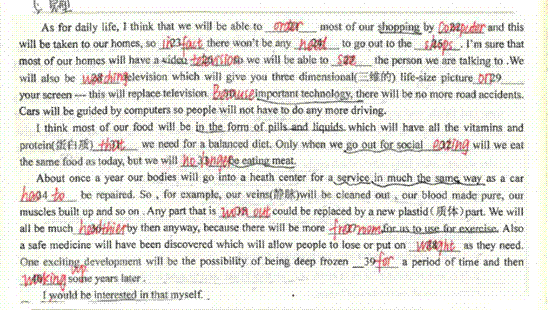 As for daily life, I think that we will be able to order most of our shopping by computer and this
will be taken to our homes, so in fact there won't be any need to go out to the shops. I'm sure that
most of our homes will have a video television we will be able to see the person we are talking to .We
will also be watching television which will give you three dimensional(三维的) life-size picture on 29
your screen --- this will replace television. Because important technology, there will be no more road accidents.
Cars will be guided by computers so people will not have to do any more driving.
I think most of our food will be in the form of pills and liquids which will have all the vitamins and
protein(蛋白质) that we need for a balanced diet. Only when we go out for social eating will we eat
the same food as today, but we will no longer be eating meat.
About once a year our bodies will go into a heath center for a service, in much the same way as a car
has 34 to be repaired. So , for example, our veins(静脉)will be cleaned out , our blood made pure, our
muscles built up and so on . Any part that is worn out could be replaced by a new plastid (质体) part. We will
all be much healthier by then anyway, because there will be more for us to use for exercise. Also
a safe medicine will have been discovered which will allow people to lose or put on weight as they need.
One exciting development will be the possibility of being deep frozen 39 for a period of time and then
waking up some years later .
I would be interested in that myself.